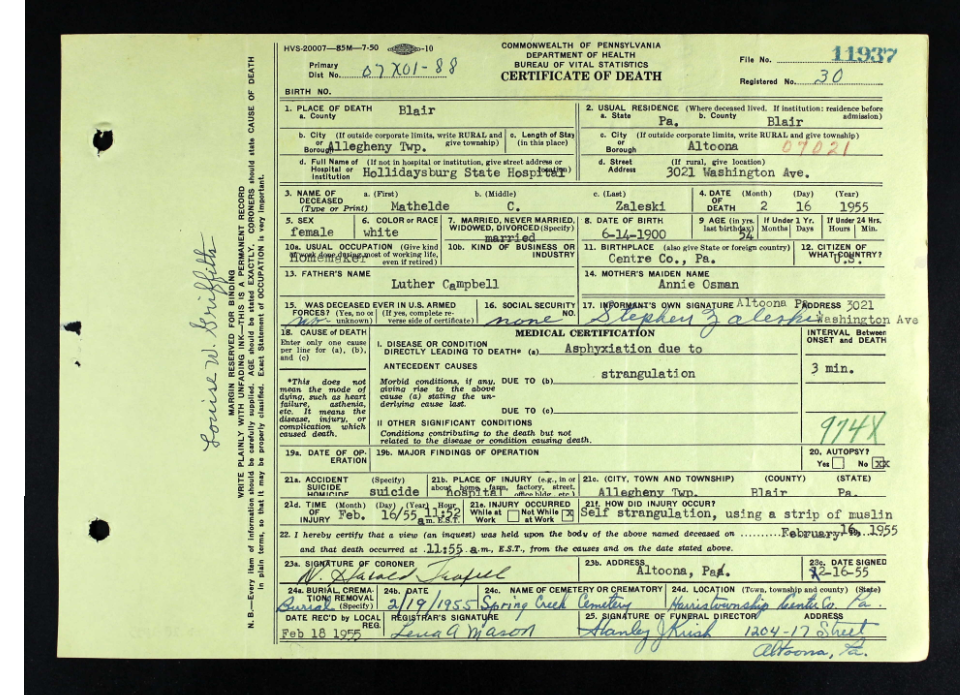 HVS-20007—85M—7-50 -10
COMMONWEALTH OF PENNSYLVANIA
DEPARTMENT OF HEALTH
BUREAU OF VITAL STATISTICS
CERTIFICATE OF DEATH
File No. 11937
Primary Dist No. 07X01-88
Registered No. 30
BIRTH NO.
1. PLACE OF DEATH
a. County Blair
2. USUAL RESIDENCE (Where deceased lived. If institution: residence before admission)
a. State Pa. b. County Blair
b. City (If outside corporate limits, write RURAL and give township) or Borough Allegheny Twp.
c. Length of Stay (in this place)
c. City (If outside corporate limits, write RURAL and give township) or Borough Altoona 07021
d. Full Name of Hospital or Institution (If not in hospital or institution, give street address or location) Hollidaysburg State Hospital
d. Street Address (If rural, give location) 3021 Washington Ave.
3. NAME OF DECEASED (Type or Print)
a. (First) Mathelde b. (Middle) C. c. (Last) Zaleski
4. DATE OF DEATH (Month) (Day) (Year) 2 16 1955
5. SEX female
6. COLOR or RACE white
7. MARRIED, NEVER MARRIED, WIDOWED, DIVORCED (Specify) married
8. DATE OF BIRTH 6-14-1900
9 AGE (in yrs. last birthday) 54
If Under 1 Yr. Months Days
If Under 24 Hrs. Hours Min.
10a. USUAL OCCUPATION (Give kind of work done during most of working life, even if retired) Homemaker
10b. KIND OF BUSINESS OR INDUSTRY
11. BIRTHPLACE (also give State or foreign country) Centre Co., Pa.
12. CITIZEN OF WHAT COUNTRY? U.S.
13. FATHER'S NAME Luther Campbell
14. MOTHER'S MAIDEN NAME Annie Osman
15. WAS DECEASED EVER IN U.S. ARMED FORCES? (Yes, no or unknown) (If yes, complete reverse side of certificate) no
16. SOCIAL SECURITY NO. none
17. INFORMANT'S OWN SIGNATURE Stephen Zaleski ADDRESS Altoona Pa 3021 Washington Ave
18. CAUSE OF DEATH
Enter only one cause per line for (a), (b), and (c)
MEDICAL CERTIFICATION
INTERVAL Between ONSET and DEATH
I. DISEASE OR CONDITION DIRECTLY LEADING TO DEATH* (a) Asphyxiation due to
ANTECEDENT CAUSES
Morbid conditions, if any, giving rise to the above cause (a) stating the underlying cause last.
DUE TO (b) strangulation
3 min.
DUE TO (c)
*This does not mean the mode of dying, such as heart failure, asthenia, etc. It means the disease, injury, or complication which caused death.
II OTHER SIGNIFICANT CONDITIONS
Conditions contributing to the death but not related to the disease or condition causing death.
974X
19a. DATE OF OPERATION
19b. MAJOR FINDINGS OF OPERATION
20. AUTOPSY? Yes No XX
21a. ACCIDENT SUICIDE HOMICIDE (Specify) suicide
21b. PLACE OF INJURY (e.g., in or about home, farm, factory, street, office bldg., etc.) hospital
21c. (CITY, TOWN AND TOWNSHIP) (COUNTY) (STATE) Allegheny Twp. Blair Pa.
21d. TIME OF INJURY (Month) (Day) (Year) Hour Feb. 16/55 11:52 a.m. E.S.T.
21e. INJURY OCCURRED While at Work Not While at Work X
21f. HOW DID INJURY OCCUR? Self strangulation, using a strip of muslin
22. I hereby certify that a view (an inquest) was held upon the body of the above named deceased on February 16, 1955
and that death occurred at 11:55 a.m., E.S.T., from the causes and on the date stated above.
23a. SIGNATURE OF CORONER
23b. ADDRESS Altoona, Pa.
23c. DATE SIGNED 2-16-55
24a. BURIAL, CREMATION, REMOVAL (Specify) Burial
24b. DATE 2/19/1955
24c. NAME OF CEMETERY OR CREMATORY Spring Creek Cemetery
24d. LOCATION (Town, township and county) (State) Harris township Centre Co. Pa.
DATE REC'D BY LOCAL REG. Feb 18 1955
REGISTRAR'S SIGNATURE Lena A Mason
25. SIGNATURE OF FUNERAL DIRECTOR Stanley J Krish
ADDRESS 1204-17 Street
Altoona, Pa.
Louise W. Griffith
MARGIN RESERVED FOR BINDING
WRITE PLAINLY WITH UNFADING INK—THIS IS A PERMANENT RECORD
N. B.—Every item of information should be carefully supplied. AGE should be stated EXACTLY. CORONERS should state CAUSE OF DEATH
in plain terms, so that it may be properly classified. Exact Statement of OCCUPATION is very important.